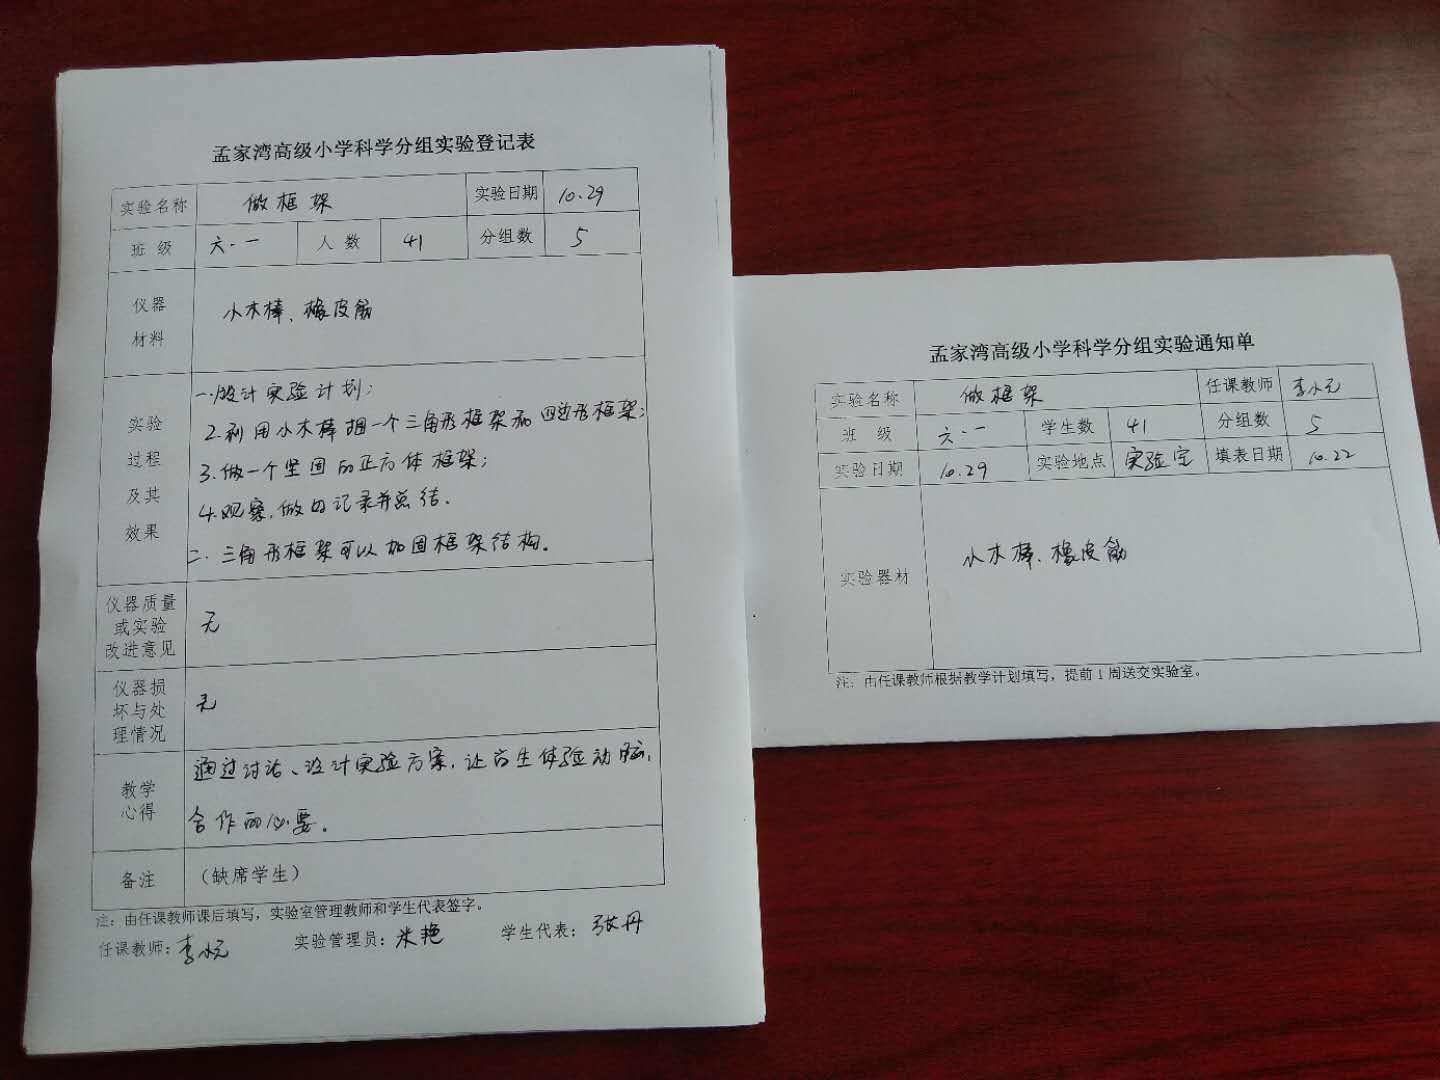 孟家湾高级小学科学分组实验登记表
实验名称 做框架 实验日期 10.29
班级 六.一 人数 41 分组数 5
仪器
材料
小木棒、橡皮筋
实验
过程
及其
效果
一.1.设计实验计划;
2.利用小木棒捆一个三角形框架和四边形框架;
3.做一个坚固的正方体框架;
4.观察,做的记录并总结.
二.三角形框架可以加固框架结构。
仪器质量
或实验
改进意见
无
仪器损
坏与处
理情况
无
教学
心得
通过讨论、设计实验方案,让学生体验动脑,
合作的必要。
备注 (缺席学生)
注:由任课教师课后填写,实验室管理教师和学生代表签字。
任课教师: 李 实验管理员: 米艳 学生代表: 张丹
孟家湾高级小学科学分组实验通知单
实验名称 做框架 任课教师 李
班级 六.一 学生数 41 分组数 5
实验日期 10.29 实验地点 实验室 填表日期 10.22
实验器材 小木棒、橡皮筋
注:由任课教师根据教学计划填写,提前1周送交实验室。